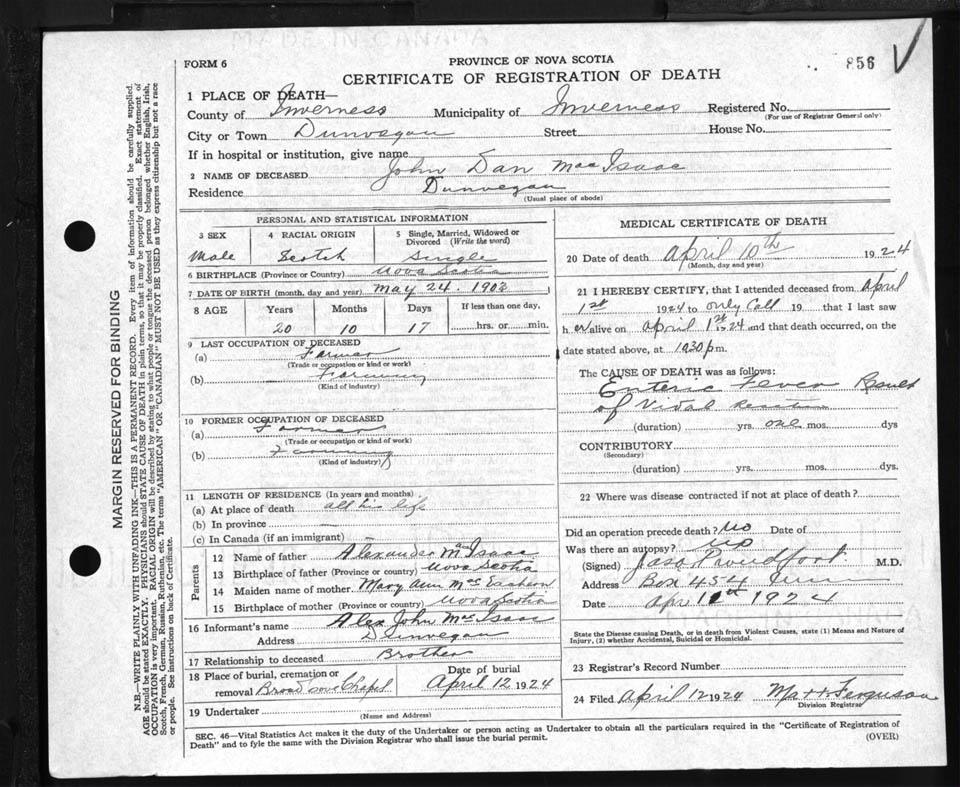 MADE IN CANADA
FORM 6
PROVINCE OF NOVA SCOTIA
856
CERTIFICATE OF REGISTRATION OF DEATH
1 PLACE OF DEATH—
County of Inverness Municipality of Inverness Registered No.
(For use of Registrar General only)
City or Town Dunvegan Street House No.
If in hospital or institution, give name
2 NAME OF DECEASED John Dan MacIsaac
Residence Dunvegan
(Usual place of abode)
PERSONAL AND STATISTICAL INFORMATION
3 SEX
Male
4 RACIAL ORIGIN
Scotch
5 Single, Married, Widowed or Divorced (Write the word)
Single
6 BIRTHPLACE (Province or Country) Nova Scotia
7 DATE OF BIRTH (month, day and year) May 24. 1903
8 AGE Years Months Days If less than one day,
20 10 17 hrs. or min.
9 LAST OCCUPATION OF DECEASED
(a) Farmer
(Trade or occupation or kind or work)
(b) Farming
(Kind of industry)
10 FORMER OCCUPATION OF DECEASED
(a) Farmer
(Trade or occupation or kind of work)
(b) Farming
(Kind of industry)
11 LENGTH OF RESIDENCE (In years and months)
(a) At place of death all his life
(b) In province
(c) In Canada (if an immigrant)
Parents
12 Name of father Alexander MacIsaac
13 Birthplace of father (Province or country) Nova Scotia
14 Maiden name of mother Mary Ann MacEachern
15 Birthplace of mother (Province or country) Nova Scotia
16 Informant's name Alex John MacIsaac
Address Dunvegan
17 Relationship to deceased Brother
18 Place of burial, cremation or Date of burial
removal Broad Cove Chapel April 12 1924
19 Undertaker
(Name and Address)
MEDICAL CERTIFICATE OF DEATH
20 Date of death April 10th 1924
(Month, day and year)
21 I HEREBY CERTIFY, that I attended deceased from April
1st 1924 to only Call 19 that I last saw
h er alive on April 1st 1924 and that death occurred, on the
date stated above, at 10 30 p m.
The CAUSE OF DEATH was as follows:
Enteric Fever
of
(duration) yrs. one mos. dys
CONTRIBUTORY
(Secondary)
(duration) yrs. mos. dys.
22 Where was disease contracted if not at place of death?
Did an operation precede death? No Date of
Was there an autopsy? No
(Signed) M.D.
Address Box 454
Date Apr 11th 1924
State the Disease causing Death, or in death from Violent Causes, state (1) Means and Nature of
Injury, (2) whether Accidental, Suicidal or Homicidal.
23 Registrar's Record Number
24 Filed April 12 1924 Ferguson
Division Registrar
SEC. 46—Vital Statistics Act makes it the duty of the Undertaker or person acting as Undertaker to obtain all the particulars required in the "Certificate of Registration of
Death" and to fyle the same with the Division Registrar who shall issue the burial permit.
(OVER)
MARGIN RESERVED FOR BINDING
N.B.—WRITE PLAINLY WITH UNFADING INK—THIS IS A PERMANENT RECORD. Every item of information should be carefully supplied.
AGE should be stated EXACTLY. PHYSICIANS should STATE CAUSE OF DEATH in plain terms, so that it may be properly classified. Exact statement of
OCCUPATION is very important. RACIAL ORIGIN will be described by stating to what people or tongue the deceased person belonged whether English, Irish,
Scotch, French, German, Russian, Ruthenian, etc. The terms "AMERICAN" OR "CANADIAN" MUST NOT BE USED as they express citizenship but not a race
or people. See instructions on back of Certificate.